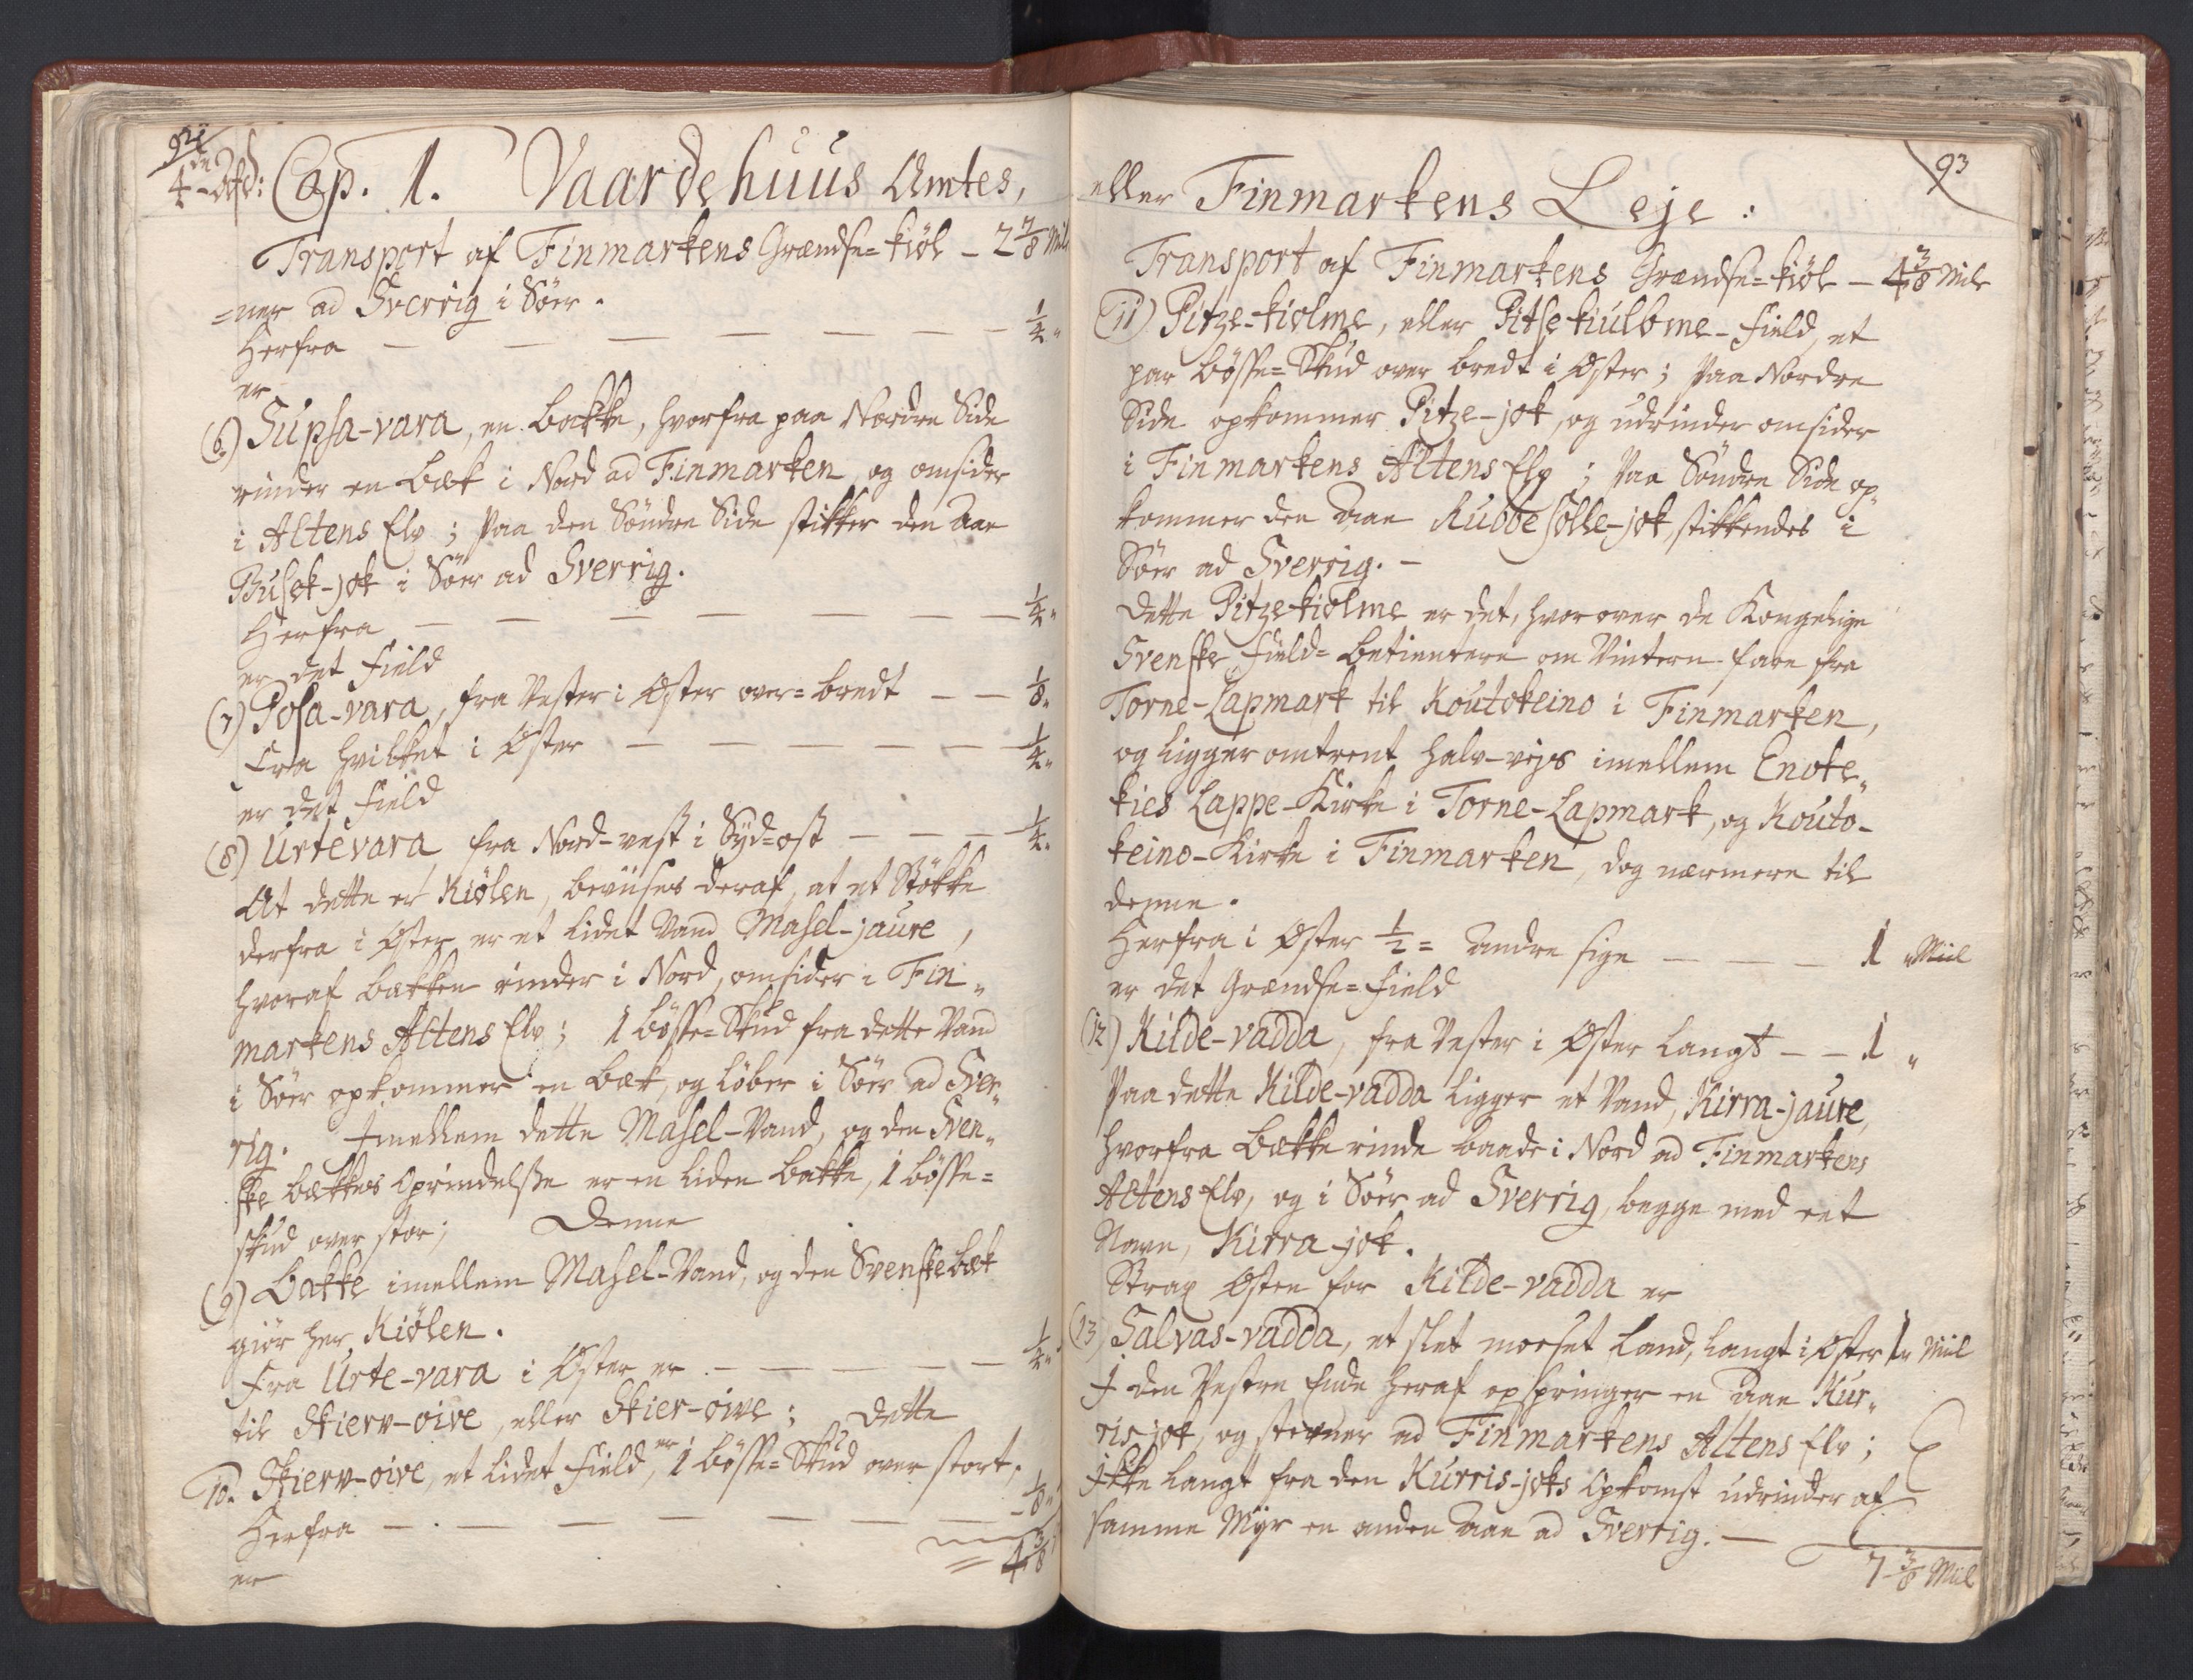 92
4de Afd:
Cap. 1. Vaardehuus Amtes,
Transport af Finmarkens Grændse-kiøl - 2 7/8 Mil
=ner ad Sverrig i Sör.
Herfra — — — — — 1/4 "
er
(6) Supsa-vara, en Bakke, hvorfra paa Nordre Side
rinder en Bæk i Nord ad Finmarken, og omsider
i Altens Elv; Paa den Söndre Side stikker den Aae
Busek-jok i Söer ad Sverrig.
Herfra — — — — — — 1/4 "
er det Field
(7) Posa-vara, fra Vester i Öster over-bredt — — 1/8 "
Fra hvilket i Öster — — — — — 1/4 "
er det Field
(8) Urtevara fra Nord-vest i Syd-ost — — — 1/4 "
At dette er Kiölen, beviises deraf, at et Stökke
derfra i Öster er et lidet Vand Masel-jaure,
hvoraf Bækken rinder i Nord, omsider i Fin„
markens Altens Elv; 1 Bösse-Skud fra dette Vand
i Söer opkommer en Bæk, og löber i Söer ad Sver„
rig. Imellem dette Masel-Vand, og den Sven„
ske Bækkes Oprindelse er en liden Bakke, 1 bösse-
skud over stor; Denne
(9) Bakke imellem Masel-Vand, og den Svenske Bæk
giör her Kiölen.
Fra Urte-vara i Öster er — — — — 1/2 "
til Skierv-oive, eller Skier-oive; Dette
10. Skierv-oive, et lidet Field, er 1 Bösse-Skud over stort,
Herfra — — — — — — 1/8 "
er
= 4 3/8
93
eller Finmarkens Leje:
Transport af Finmarkens Grændse-kiöl — 4 3/8 Mile
(11) Pitze-kiolme, eller Pitsekiulbme-Field, et
par Bösse-Skud over bredt i Öster; Paa Nordre
Side opkommer Pitze-jok, og udrinder omsider
i Finmarkens Altens Elv; Paa Söndre Side op„
kommer den Aae Rubbesolle-jok, stikkendes i
Söer ad Sverrig. —
Dette Pitzekiolme er det, hvorover de Kongelige
Svenske Field-Betientere om Vintern fare fra
Torne-Lapmark til Koutokeino i Finmarken,
og ligger omtrent halv-vejs imellem Enote„
kies Lappe-Kirke i Torne-Lapmark, og Kouto-
keino-Kirke i Finmarken, dog nærmere til
denne.
Herfra i Öster 1/2 = Andre sige — — — 1 " Miil
er det Grændse-Field
(12) Kilde-vadda, fra Vester i Öster langt — — 1 "
Paa dette Kilde-vadda ligger et Vand, Kirra-jaure,
hvorfra Bække rinde baade i Nord ad Finmarkens
Altens Elv, og i Söer ad Sverrig, begge med eet
Navn, Kirra-jok.
Strax Östen for Kilde-vadda er
(13) Salvas-vadda, et slet moeset Land, langt i Öster 1 " Miil
I den Vestre Ende heraf opspringer en Aae Kur„
ris jok, og stevner ad Finmarkens Altens Elv;
Ikke langt fra den Kurris-joks Opkomst udrinder af
samme Myr en anden Aae ad Sverrig. —
7 3/8 Miil